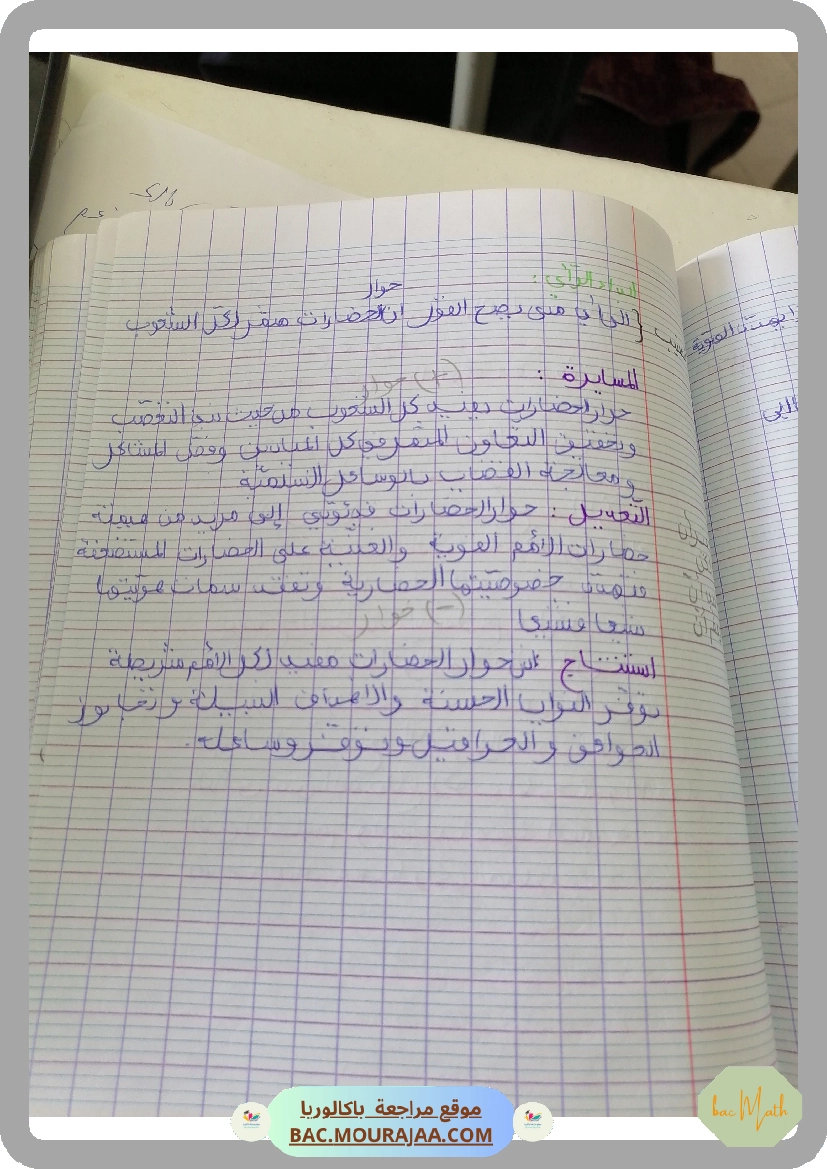 ابداء الرأي :
حوار
إلى أي مدى يصح القول ان الحضارات مفيد لكل الشعوب
المسايرة : (+) حوار
حوار الحضارات يفيد كل الشعوب من حيث نبذ التعصب
وتحقيق التعاون المثمر في كل الميادين وفض المشاكل
ومعالجة القضايا بالوسائل السلمية
التعديل : حوار الحضارات قد يؤدي إلى مزيد من هيمنة
حضارات الأمم القوية والغنية على الحضارات المستضعفة
خصوصيتها الحضارية وتفقد سمات هويتها
شيئا فشيئا (-) حوار
استنتاج ان حوار الحضارات مفيد لكل الأمم شريطة
توفر النوايا الحسنة والأهداف النبيلة وتجاوز
العوائق والعراقيل وتوفر وسائله.
موقع مراجعة باكالوريا
BAC.MOURAJAA.COM
bac Math